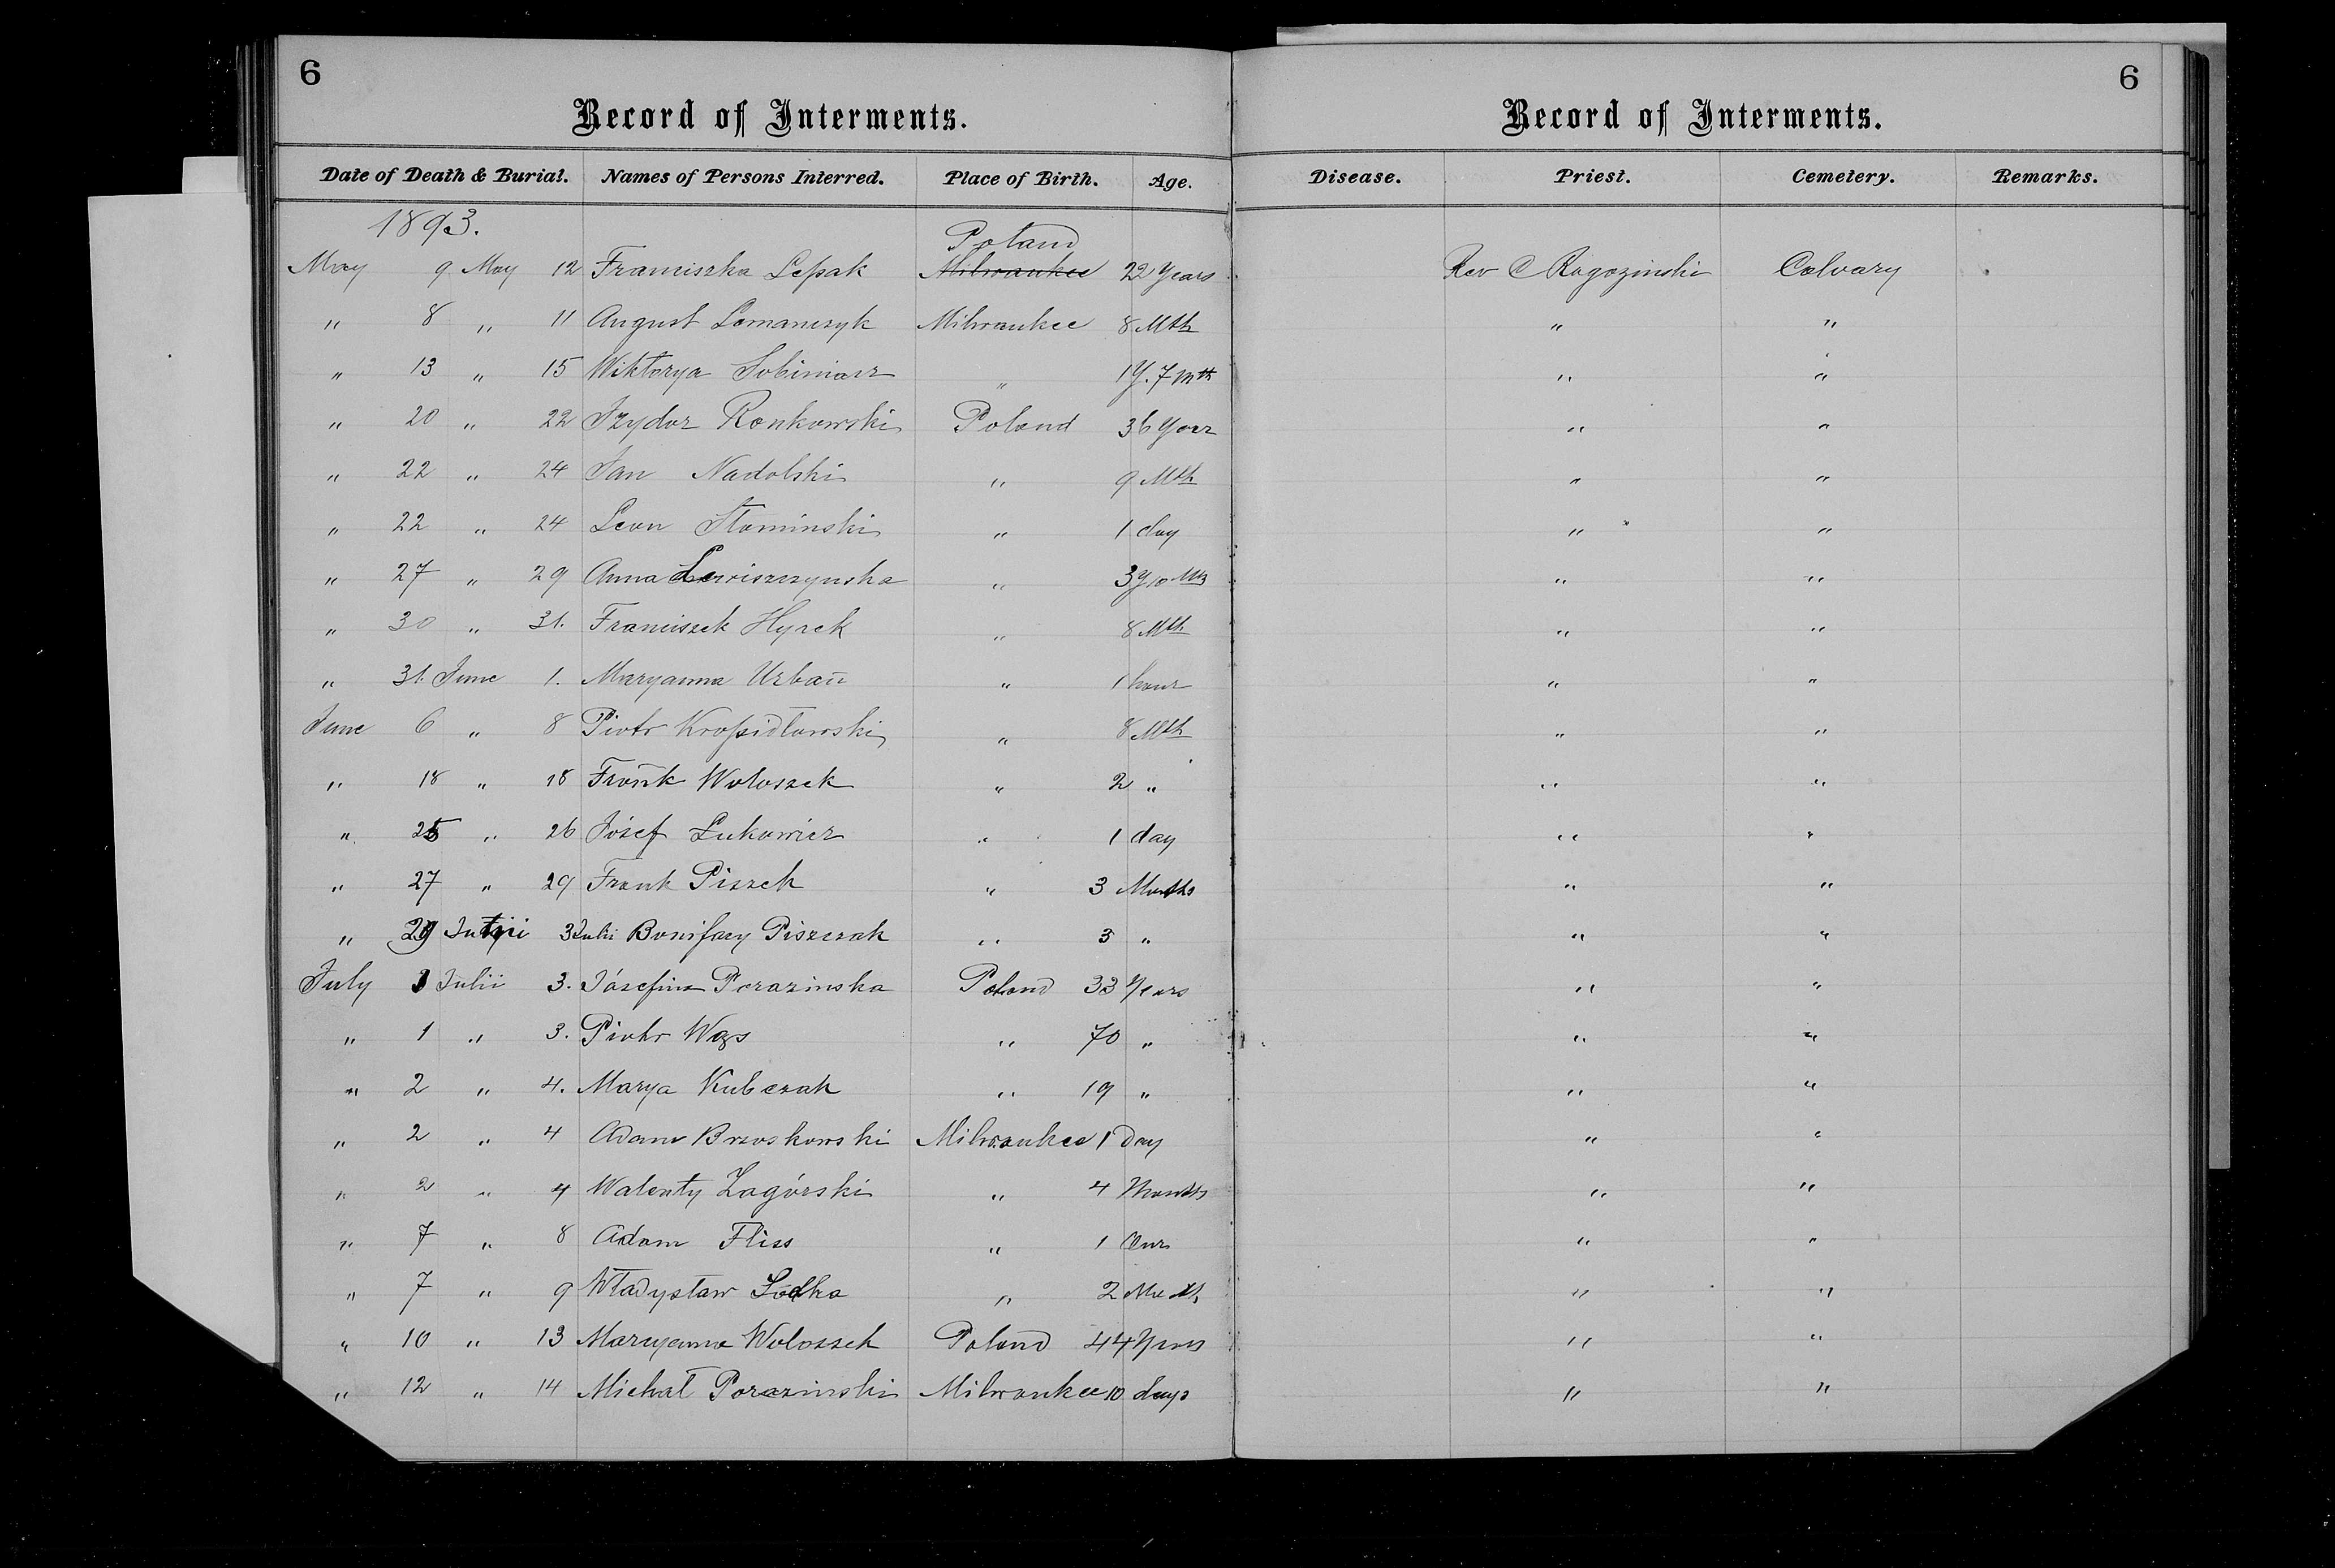 6
Record of Interments.
Date of Death & Burial. Names of Persons Interred. Place of Birth. Age.
1893.
Poland
May 9 May 12 Franciszka Lepak Milwaukee 22 Years
" 8 " 11 August Lomanczyk Milwaukee 8 Mth
" 13 " 15 Wiktorya Sobiniarz " 1 y. 7 mth
" 20 " 22 Izydor Ronkowski Poland 36 Year
" 22 " 24 Jan Nadolski " 9 Mth
" 22 " 24 Leon Slominski " 1 day
" 27 " 29 Anna Lewiszczynska " 3 y 10 Mts
" 30 " 31. Franciszek Hyrek " 8 Mth
" 31. June 1. Maryanna Urban " 1 hour
June 6 " 8 Piotr Kropidłowski " 8 Mth
" 18 " 18 Frank Woloszek " 2 "
" 25 " 26 Józef Lukowicz " 1 day
" 27 " 29 Frank Piszek " 3 Months
" 29 3 Julii Bonifacy Piszczak " 3 "
July 1 Julii 3. Józefina Porazinska Poland 33 Years
" 1 " 3. Piotr Wąs " 70 "
" 2 " 4. Marya Kubczak " 19 "
" 2 " 4 Adam Brzoskowski Milwaukee 1 Day
" 2 " 4 Walenty Zagórski " 4 Months
" 7 " 8 Adam Fliss " 1 Our
" 7 " 9 Władysław Lodka " 2 Month
" 10 " 13 Maryanna Woloszek Poland 44 Years
" 12 " 14 Michał Porazinski Milwaukee 10 days
6
Record of Interments.
Disease. Priest. Cemetery. Remarks.
Rev C Rogozinski Calvary
" "
" "
" "
" "
" "
" "
" "
" "
" "
" "
" "
" "
" "
" "
" "
" "
" "
" "
" "
" "
" "
" "